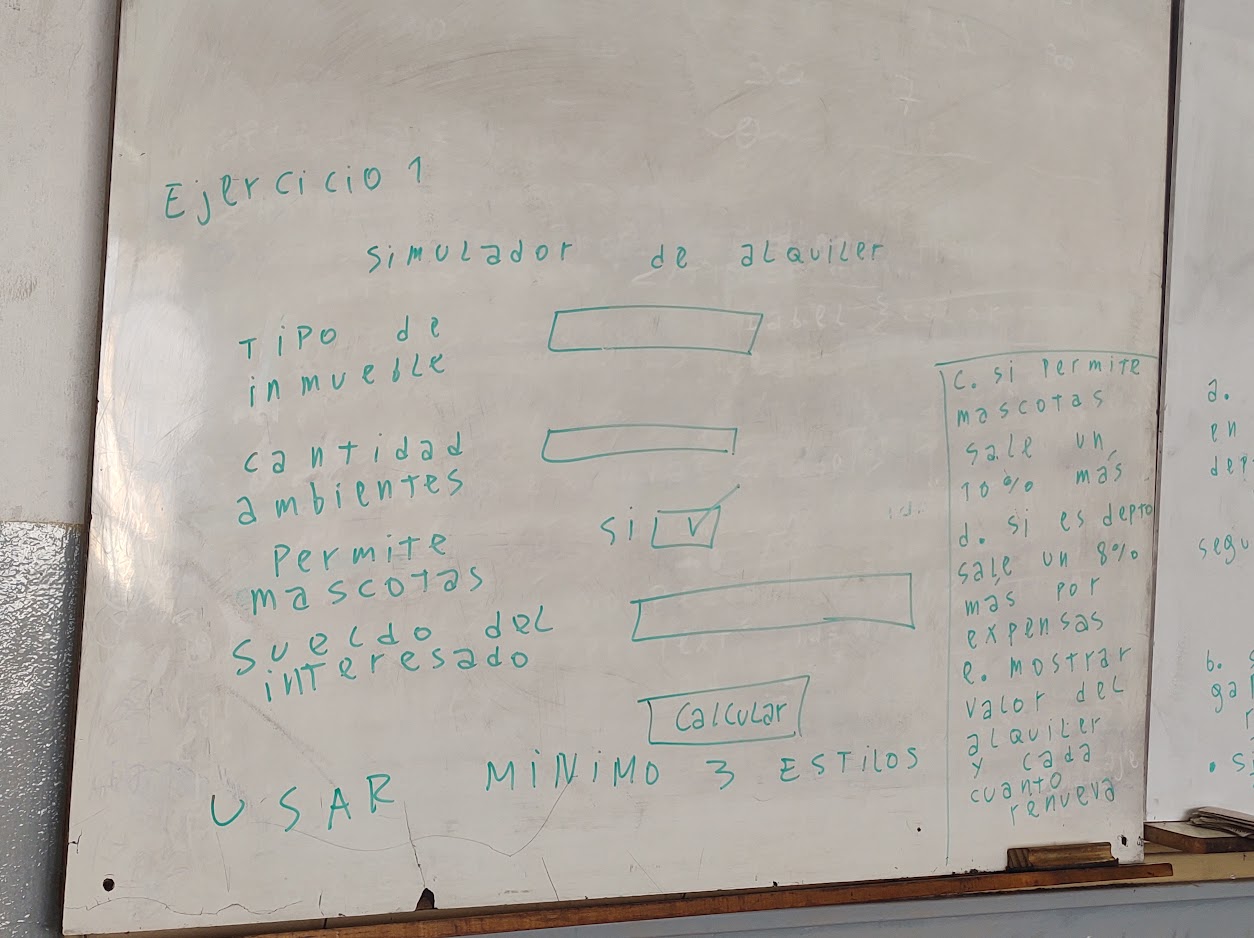 Ejercicio 1
simulador de alquiler
Tipo de
inmueble
cantidad
ambientes
permite
mascotas
si
sueldo del
interesado
calcular
USAR MiNiMO 3 ESTiLOS
c. si permite
mascotas
sale un
10% más
d. si es depto
sale un 8%
mas por
expensas
e. mostrar
valor del
alquiler
y cada
cuanto
renueva
a.
en
segu
b.